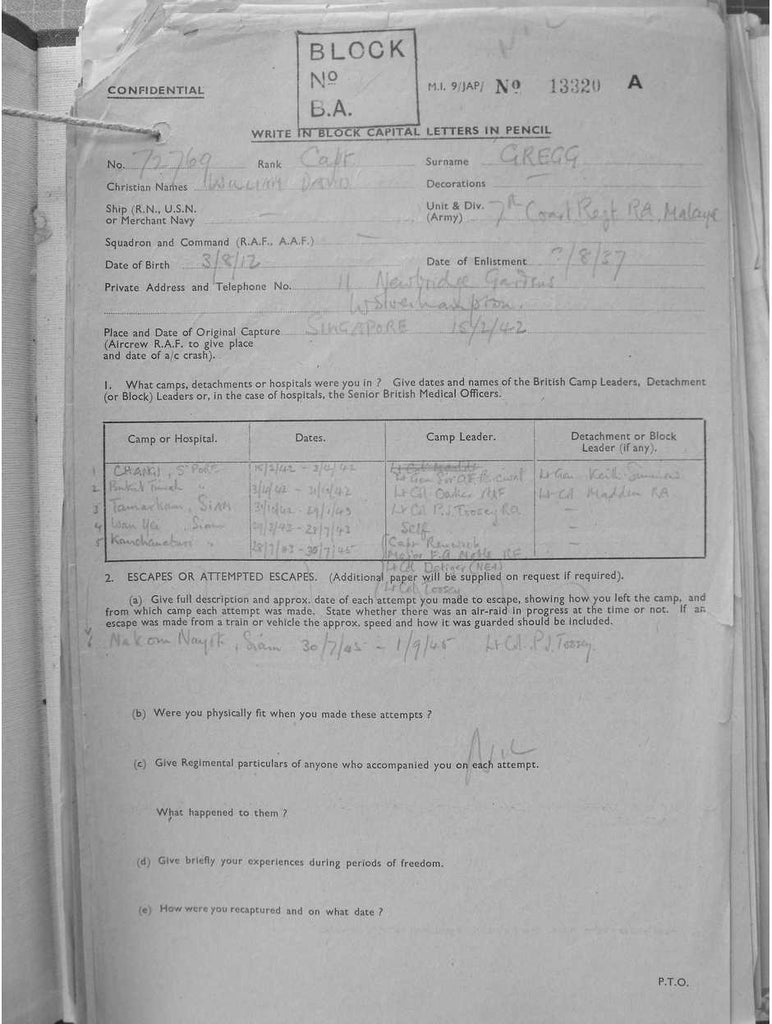 BLOCK
No
B.A.
CONFIDENTIAL
M.I. 9/JAP/ No 13320 A
WRITE IN BLOCK CAPITAL LETTERS IN PENCIL
No. 72769 Rank Capt Surname GREGG
Christian Names WILLIAM DAVID Decorations —
Ship (R.N., U.S.N. or Merchant Navy —
Unit & Div. (Army) 7th Coast Regt RA, Malaya
Squadron and Command (R.A.F., A.A.F.) —
Date of Birth 3/8/12 Date of Enlistment /8/37
Private Address and Telephone No. 11 Newbridge Gardens
Wolverhampton.
Place and Date of Original Capture SINGAPORE 15/2/42
(Aircrew R.A.F. to give place
and date of a/c crash).
1. What camps, detachments or hospitals were you in ? Give dates and names of the British Camp Leaders, Detachment
(or Block) Leaders or, in the case of hospitals, the Senior British Medical Officers.
Camp or Hospital. Dates. Camp Leader. Detachment or Block Leader (if any).
1 CHANGI, S'PORE 15/2/42 - 3/4/42 Lt Gen Percival Lt Gen Keith Simmons
2 Bukit Timah " 3/4/42 - 31/10/42 Lt Col Oakes AIF Lt Col Madden RA
3 Tamarkan, SIAM 31/10/42 - Lt Col P.J. Toosey RA —
4 Wan Yai, Siam - 28/7/43 Self —
5 Kanchanaburi " 28/7/43 - 30/7/45 Capt —
Major
Lt Col
Lt Col Toosey
2. ESCAPES OR ATTEMPTED ESCAPES. (Additional paper will be supplied on request if required).
(a) Give full description and approx. date of each attempt you made to escape, showing how you left the camp, and
from which camp each attempt was made. State whether there was an air-raid in progress at the time or not. If an
escape was made from a train or vehicle the approx. speed and how it was guarded should be included.
Nakom Nayok, Siam 30/7/45 - 1/9/45 Lt Col. P.J. Toosey.
(b) Were you physically fit when you made these attempts ?
NIL
(c) Give Regimental particulars of anyone who accompanied you on each attempt.
What happened to them ?
(d) Give briefly your experiences during periods of freedom.
(e) How were you recaptured and on what date ?
P.T.O.